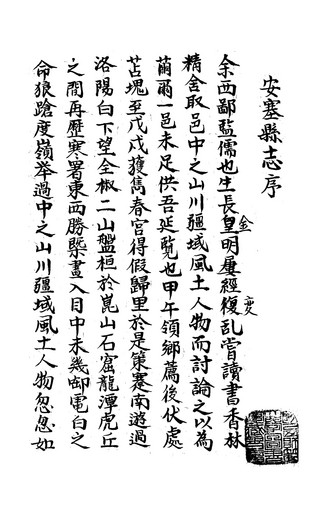 安塞縣志序
余西鄙儒也生長皇明屢經復乱嘗讀書香林
金
变
精舍取邑中之山川疆域風土人物而討論之以為
爾一邑未足供吾延覧也甲午領鄉薦後伏處
苫塊至戊戌獲雋春宮得假歸里於是策蹇南遊過
洛陽白下望全椒二山盤桓於崑山石窟龍潭虎丘
之間再歷寒署東西勝槩盡入目中未幾啣電白之
命狼蹌度嶺举過中之山川疆域風土人物忽忽如